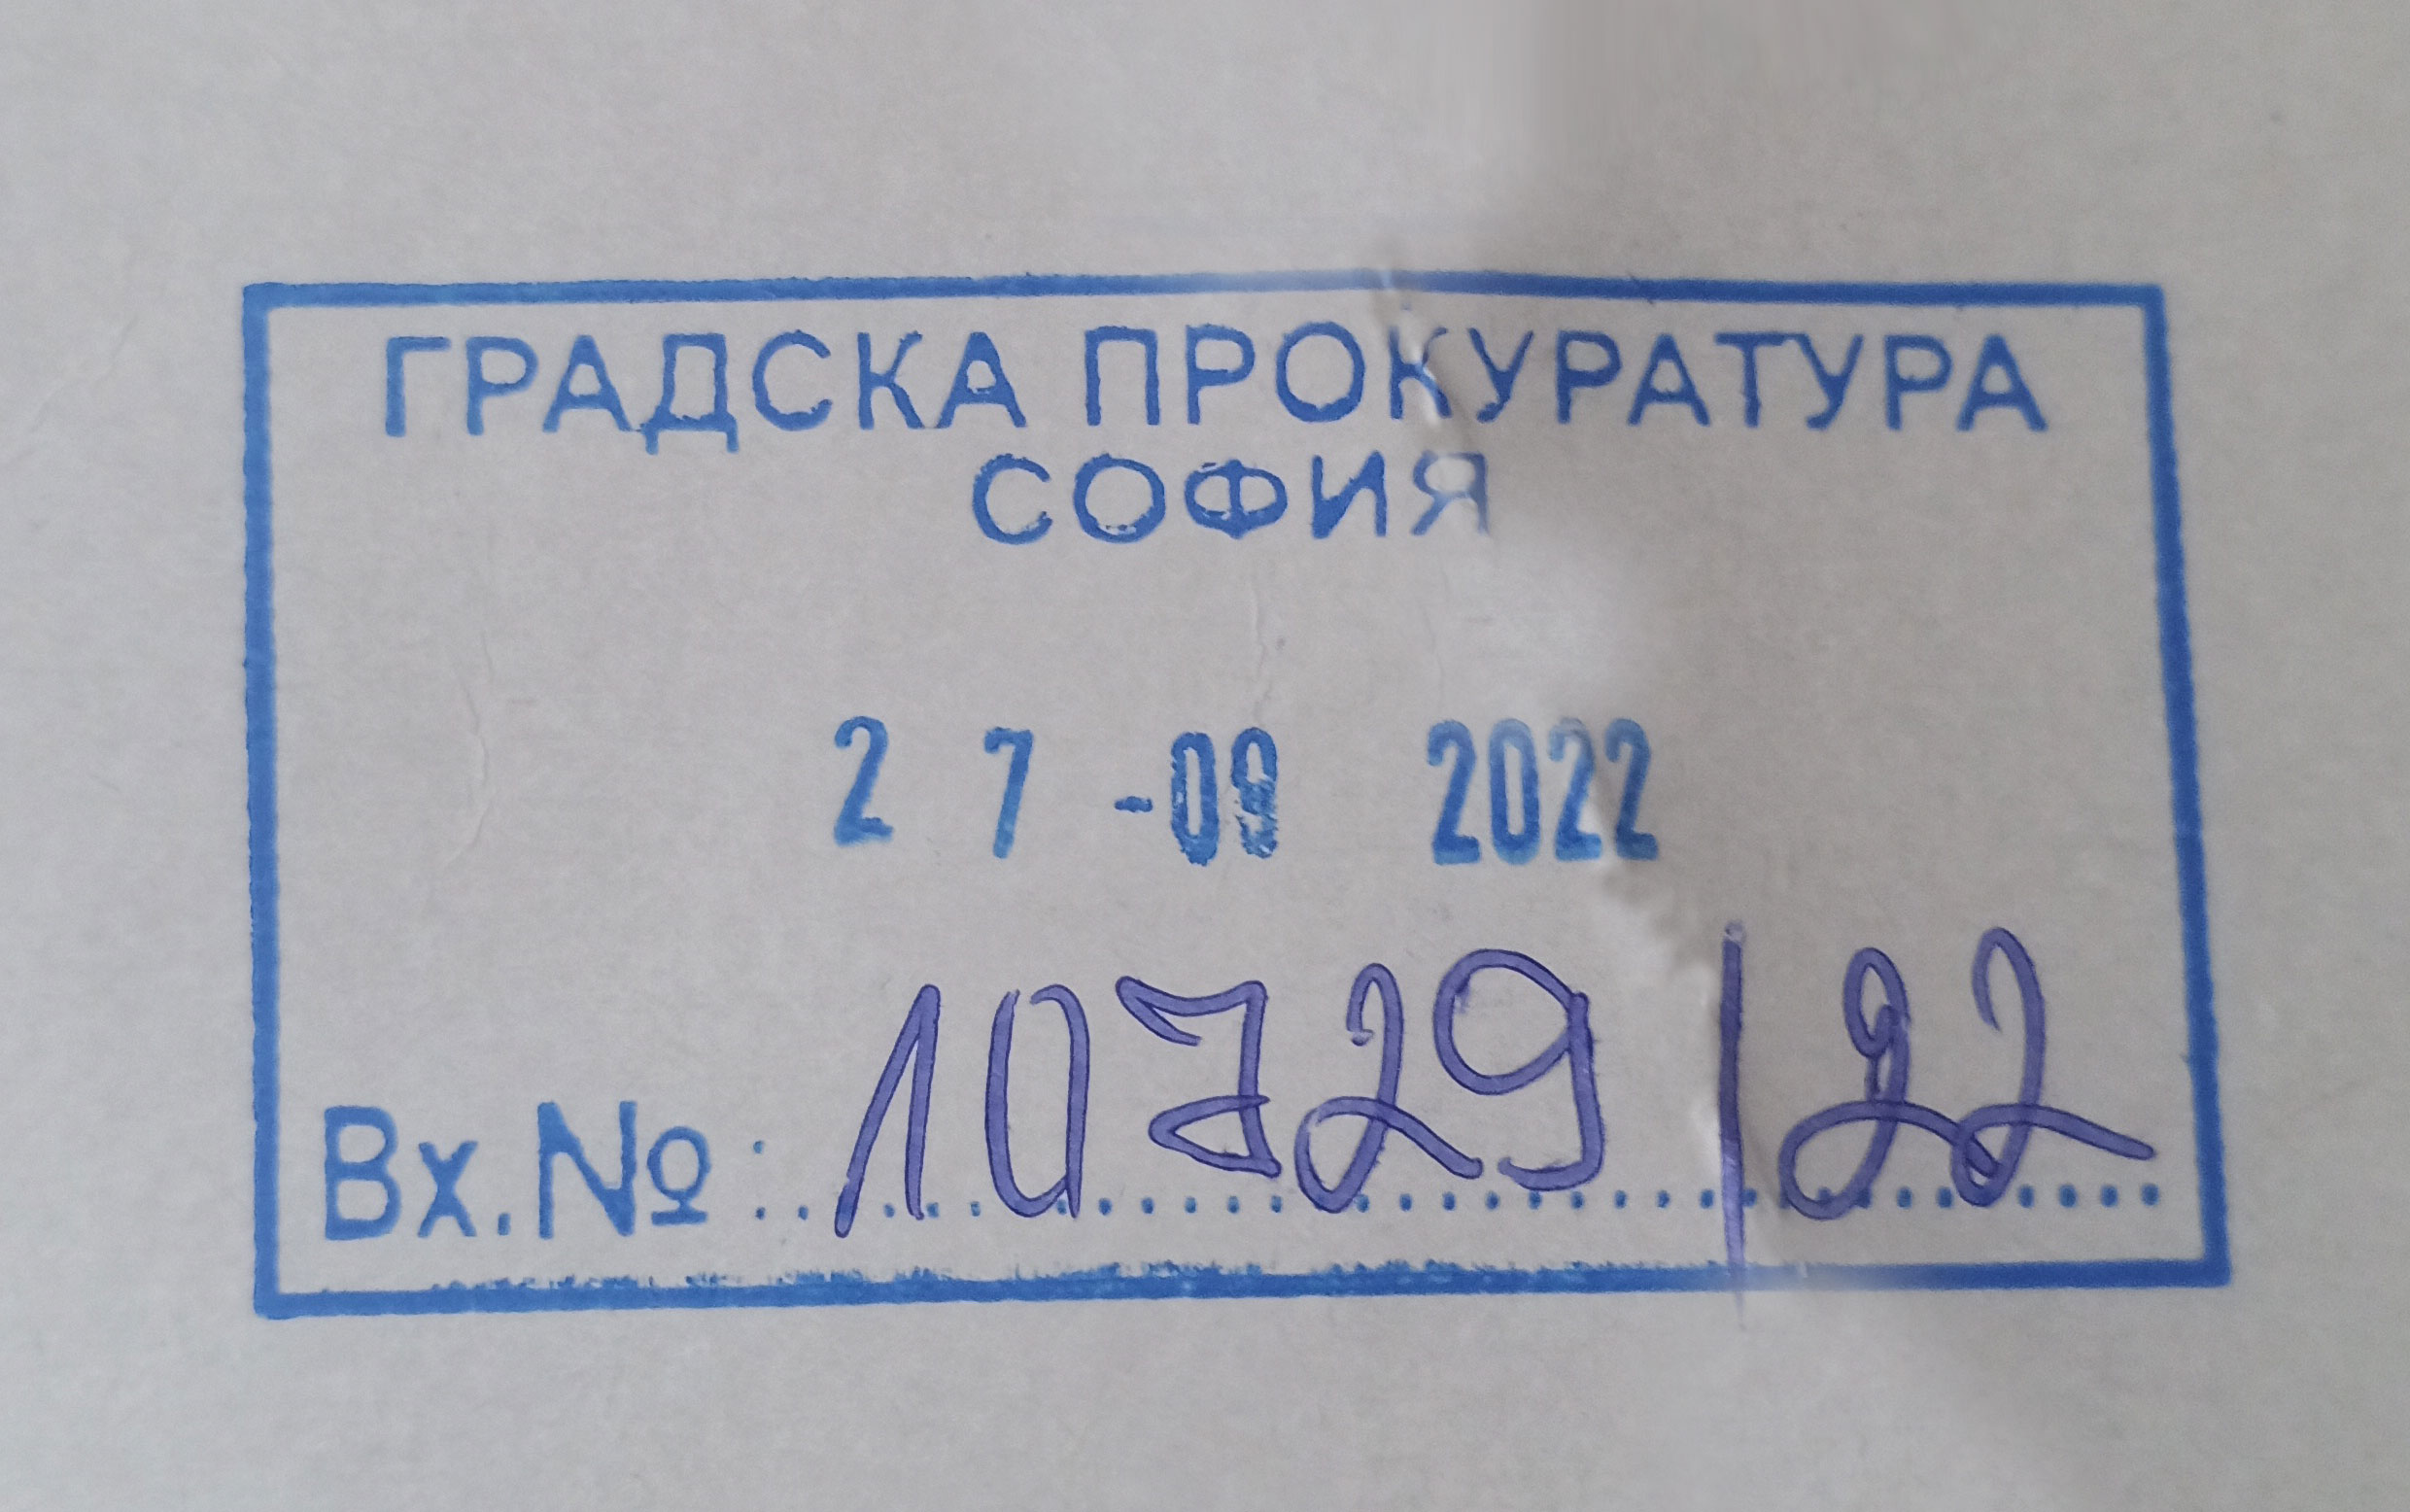 ГРАДСКА ПРОКУРАТУРА
СОФИЯ
27 -09 2022
Вх.№:10729/22